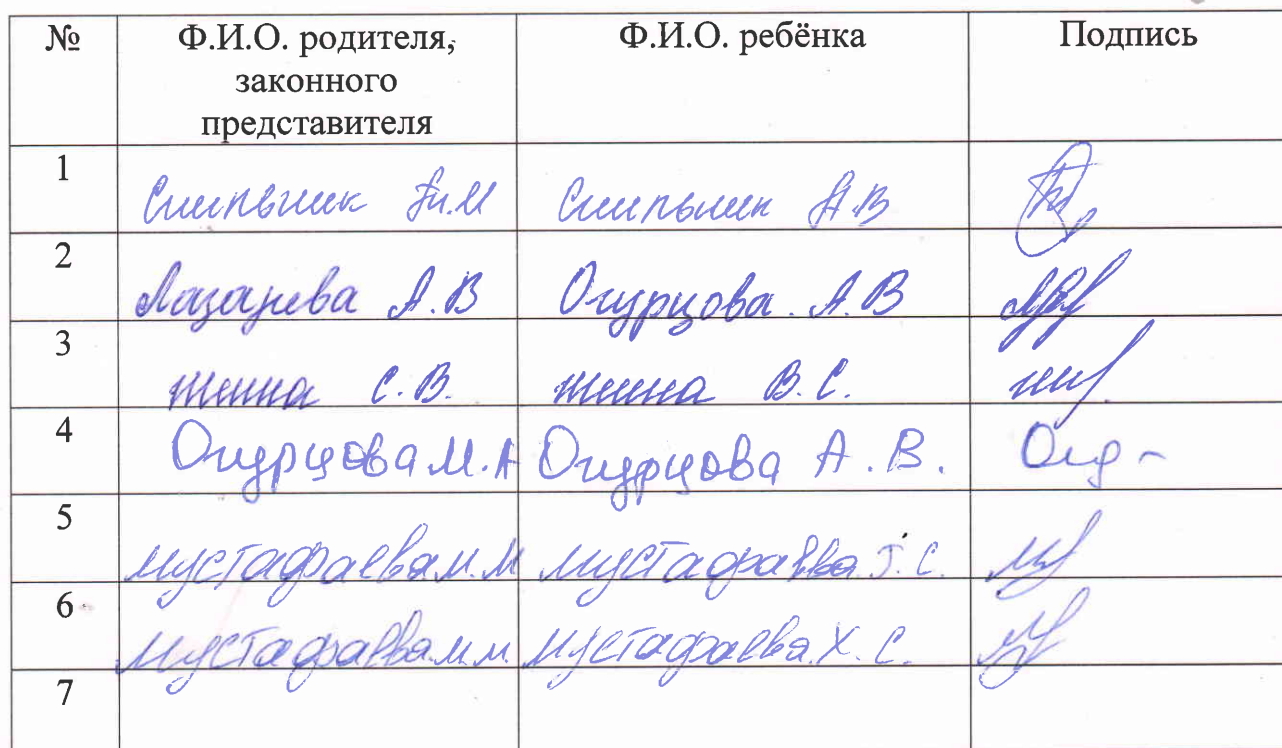 № Ф.И.О. родителя, законного представителя Ф.И.О. ребёнка Подпись
1
2 Лазарева А.В Огурцова А.В
3 С.В. В.С.
4 Огурцова М.А Огурцова А.В.
5 Мустафаева М.М Мустафаева Т.С.
6 Мустафаева М.М. Мустафаева Х.С.
7